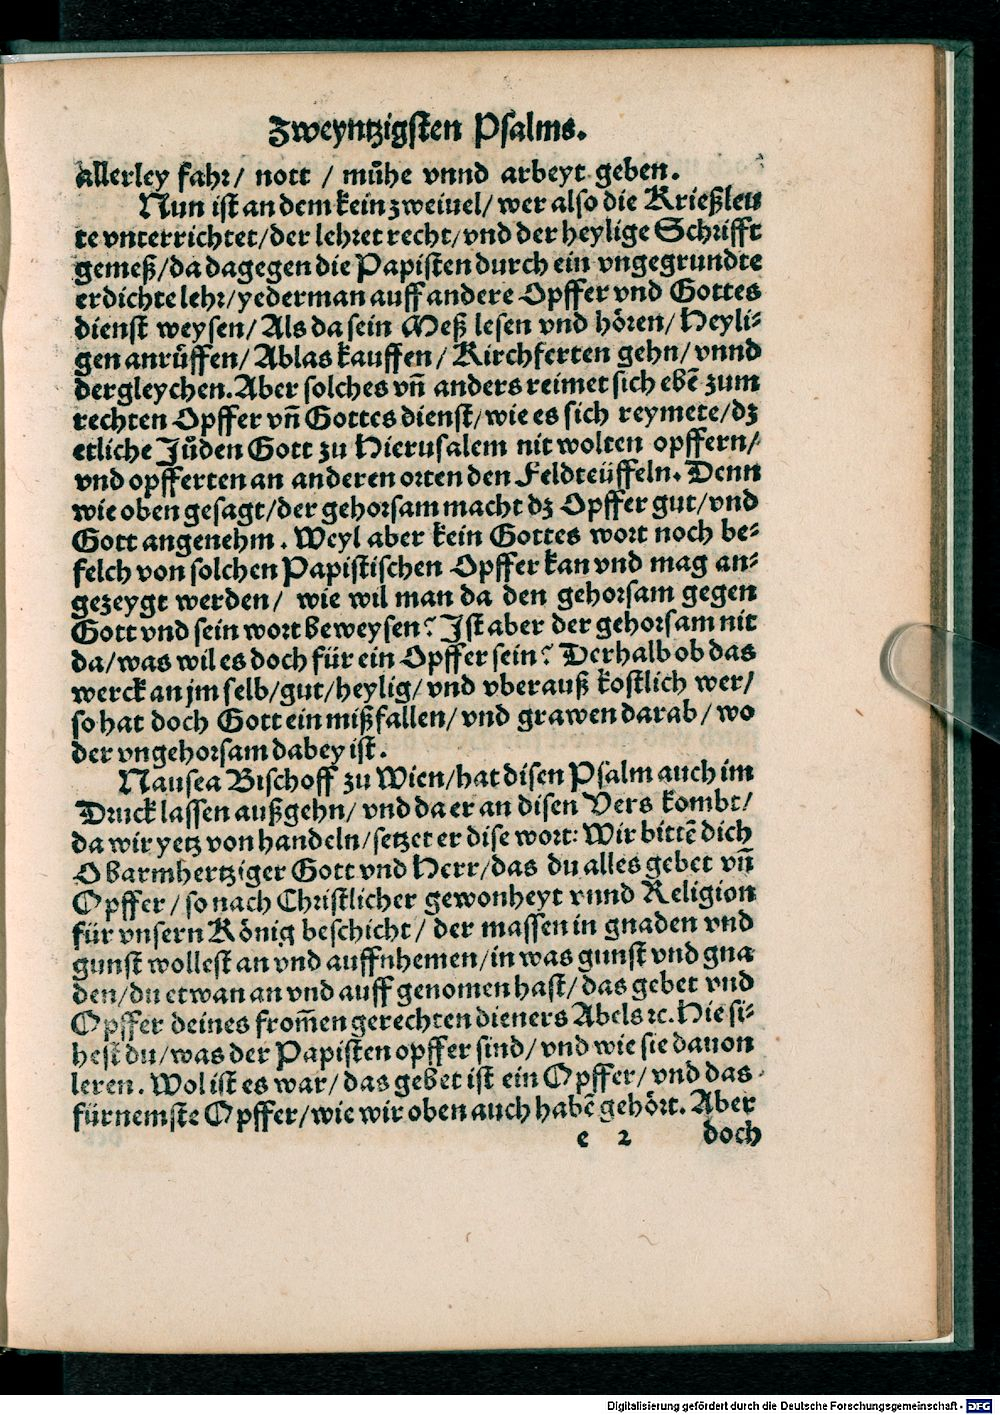 Zweyntzigsten Psalms.
allerley fahr/ nott / mühe vnnd arbeyt geben.
Nun ist an dem kein zweiuel/ wer also die Krießleu
te vnterrichtet/ der lehret recht/ vnd der heylige Schrifft
gemeß/ da dagegen die Papisten durch ein vngegrundte
erdichte lehr/ yederman auff andere Opffer vnd Gottes
dienst weysen/ Als da sein Meß lesen vnd hören/ Heyli-
gen anrüffen/ Ablas kauffen/ Kirchferten gehn/ vnnd
dergleychen. Aber solches vn̄ anders reimet sich ebē zum
rechten Opffer vn̄ Gottes dienst/ wie es sich reymete/ dz
etliche Jüden Gott zu Hierusalem nit wolten opffern/
vnd opfferten an anderen orten den Feldteüffeln. Denn
wie oben gesagt/ der gehorsam macht dz Opffer gut/ vnd
Gott angenehm. Weyl aber kein Gottes wort noch be-
felch von solchen Papistischen Opffer kan vnd mag an-
gezeygt werden/ wie wil man da den gehorsam gegen
Gott vnd sein wort beweysen? Ist aber der gehorsam nit
da/ was wil es doch für ein Opffer sein? Derhalb ob das
werck an jm selb/ gut/ heylig/ vnd vberauß kostlich wer/
so hat doch Gott ein mißfallen/ vnd grawen darab/ wo
der vngehorsam dabey ist.
Nausea Bischoff zu Wien/ hat disen Psalm auch im
Druck lassen außgehn/ vnd da er an disen Vers kombt/
da wir yetz von handeln/ setzet er dise wort: Wir bittē dich
O barmhertziger Gott vnd Herr/ das du alles gebet vn̄
Opffer/ so nach Christlicher gewonheyt vnnd Religion
für vnsern König beschicht/ der massen in gnaden vnd
gunst wollest an vnd auffnhemen/ in was gunst vnd gna
den/ du etwan an vnd auff genomen hast/ das gebet vnd
Opffer deines from̄en gerechten dieners Abels ꝛc. Hie si-
hest du/ was der Papisten opffer sind/ vnd wie sie dauon
leren. Wol ist es war/ das gebet ist ein Opffer/ vnd das
fürnemste Opffer/ wie wir oben auch habē gehört. Aber
e 2 doch
Digitalisierung gefördert durch die Deutsche Forschungsgemeinschaft - DFG